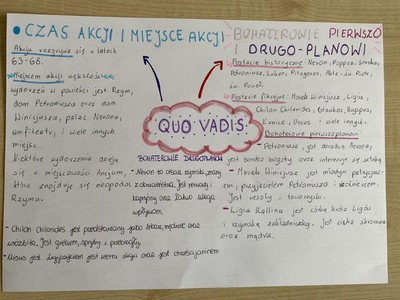 • CZAS AKCJI I MIEJSCE AKCJI
Akcja rozgrywa się w latach
63-68.
Miejscem akcji większości
wydarzeń w powieści jest Rzym,
dom Petroniusza oraz dom
Winicjusza, pałac Nerona,
amfiteatr, i wiele innych
miejsc.
Niektóre wydarzenia dzieją
się w miejscowości Ancjum,
która znajduje się nieopodal
Rzymu.
BOHATEROWIE PIERWSZO
I DRUGO-PLANOWI
Postacie historyczne: Neron, Poppea, Seneka,
Petroniusz, Lukan, Pitagoras, Akte, św. Piotr,
św. Paweł.
Postacie fikcyjne: Marek Winicjusz, Ligia,
Chilon Chilonides, Glaukus, Kryspus,
Eunice, Ursus i wiele innych.
Bohaterowie pierwszoplanowi
- Petroniusz, jest
jest bardzo bogaty oraz interesuje się sztuką
- Marek Winicjusz jest młodym patrycjuszem,
przyjacielem Petroniusza i żołnierzem.
Jest wesoły i towarzyski.
- Ligia Kallina jest córką króla Ligów
i rzymską zakładniczką. Jest cicha skromna
oraz mądra.
QUO VADIS
BOHATEROWIE DRUGOPLANOWI
- Neron to cesarz rzymski, znany
z okrucieństwa. Jest mniwy i
kapryśny oraz łatwo ulega
wpływom.
- Chilon Chilonides jest przedstawiany jako lekarz, mędrzec oraz
wróżbita. Jest grekiem, sprytny i przebiegły.
- Ursus jest Ligijczykiem jest wierny sługą oraz jest chrześcijaninem